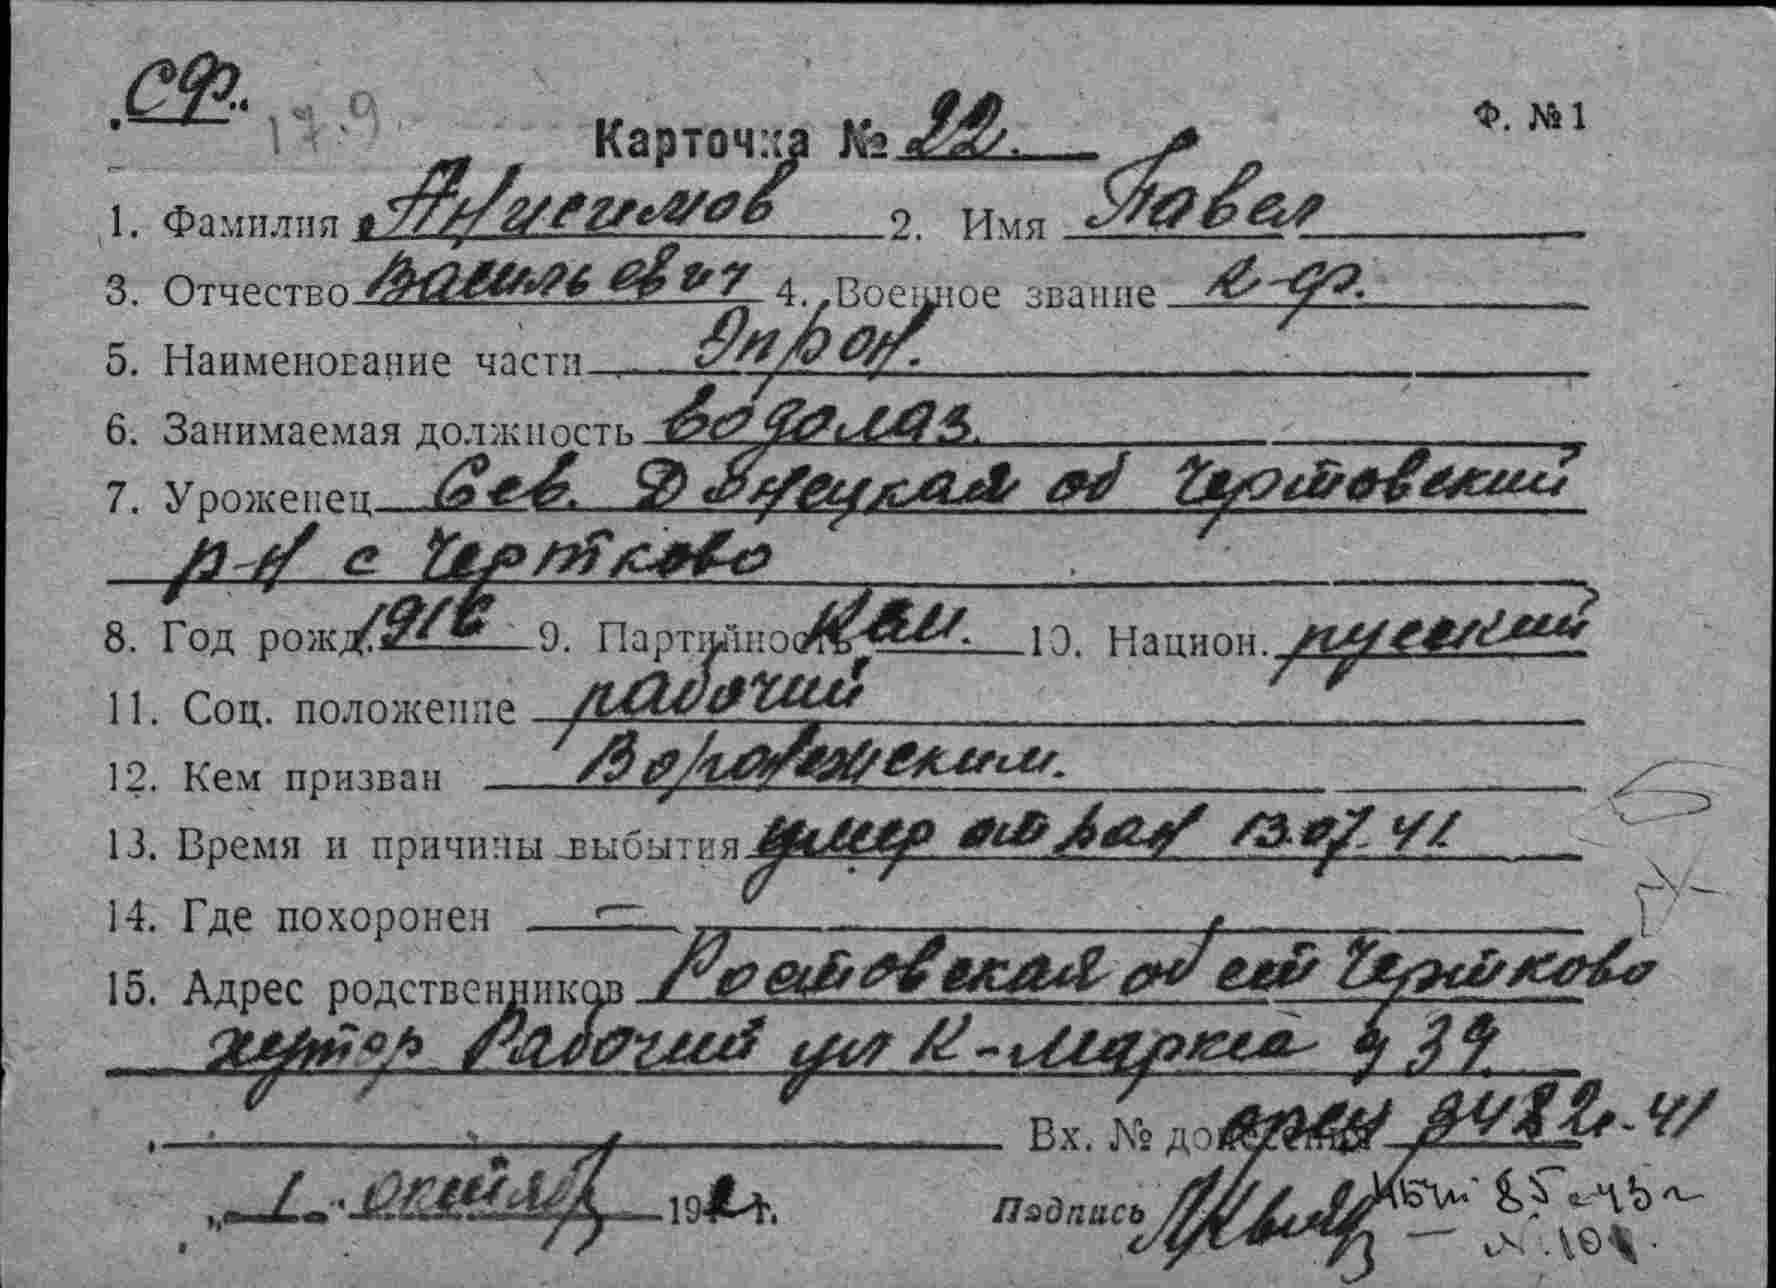 СФ.
17.9.
Карточка № 22. Ф. №1
1. Фамилия Анисимов 2. Имя Павел
3. Отчество Васильевич 4. Военное звание к-ф.
5. Наименование части Эпрон.
6. Занимаемая должность водолаз.
7. Уроженец Сев. Донецкая об Чертовский
р-н с Чертково
8. Год рожд. 1916 9. Партийность Кан. 10. Национ. русский
11. Соц. положение рабочий
12. Кем призван Воронежским.
13. Время и причины выбытия умер от ран 13.07.41.
14. Где похоронен —
15. Адрес родственников Ростовская об ст Чертково
хутор Рабочий ул К-Маркса д 39.
Вх. № донесения 41
„1." октября 194 г. Подпись